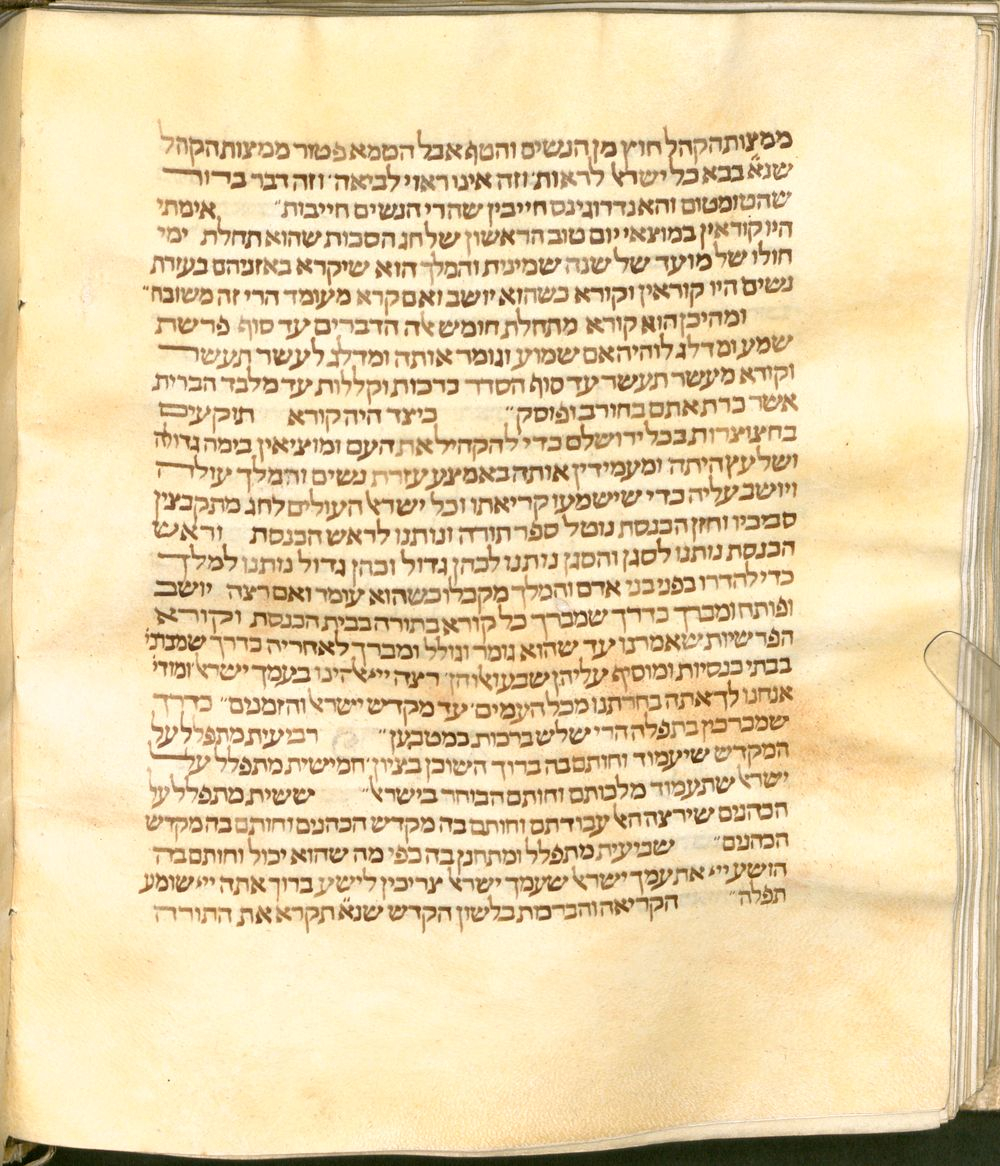 ממצות הקהל חוץ מן הנשים והטף אבל הטמא פטור ממצות הקהל
שנא׳ בבא כל ישראל לראות׳ וזה אינו ראוי לביאה׳ וזה דבר ברור
שהטומטום והאנדרוגינס חייבין שהרי הנשים חייבות״ אימתי
היו קוראין במוצאי יום טוב הראשון של חג הסכות שהוא תחלת ימי
חולו של מועד של שנה שמינית והמלך הוא שיקרא באזניהם בעזרת
נשים היו קוראין וקורא כשהוא יושב ואם קרא מעומד הרי זה משובח״
ומהיכן הוא קורא מתחלת חומש אלה הדברים עד סוף פרשת
שמע ומדלג לוהיה אם שמוע וגומר אותה ומדלג לעשר תעשר
וקורא מעשר תעשר עד סוף הסדר ברכות וקללות עד מלבד הברית
אשר כרת אתם בחורב ופוסק״ כיצד היה קורא תוקעים
בחצוצרות בכל ירושלם כדי להקהיל את העם ומוציאין בימה גדולה
ושל עץ היתה ומעמידין אותה באמצע עזרת נשים והמלך עולה
ויושב עליה כדי שישמעו קריאתו וכל ישראל העולים לחג מתקבצין
סביביו וחזן הכנסת נוטל ספר תורה ונותנו לראש הכנסת וראש
הכנסת נותנו לסגן והסגן נותנו לכהן גדול וכהן גדול נותנו למלך
כדי להדרו בפני בני אדם והמלך מקבלו כשהוא עומד ואם רצה יושב
ופותח ומברך כדרך שמברך כל קורא בתורה בבית הכנסת וקורא
הפרשיות שאמרנו עד שהוא גומר וגולל ומברך לאחריה כדרך שמברכי׳
בבתי כנסיות ומוסיף עליהן שבע ואלו הן׳ רצה ייי אלהינו בעמך ישראל ומודי׳
אנחנו לך אתה בחרתנו מכל העמים׳ עד מקדש ישראל והזמנים״ כדרך
שמברכין בתפלה הרי שלש ברכות כמטבען״ רביעית מתפלל על
המקדש שיעמוד וחותם בה ברוך השוכן בציון׳ חמישית מתפלל על
ישראל שתעמוד מלכותם וחותם הבוחר בישראל״ ששית מתפלל על
הכהנים שירצה האל עבודתם וחותם בה מקדש הכהנים וחותם בה מקדש
הכהנים״ שביעית מתפלל ומתחנן בה כפי מה שהוא יכול וחותם בה
הושע ייי את עמך ישראל שעמך ישראל צריכין לישע ברוך אתה ייי שומע
תפלה״ הקריאה והברכות בלשון הקדש שנא׳ תקרא את התורה